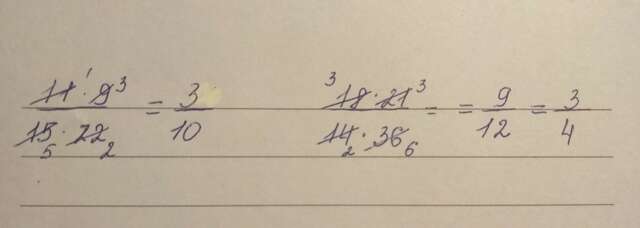 11¹ · 9³ / 15₅ · 22₂ = 3/10    ³18 · 21³ / 14₂ · 36₆ = = 9/12 = 3/4